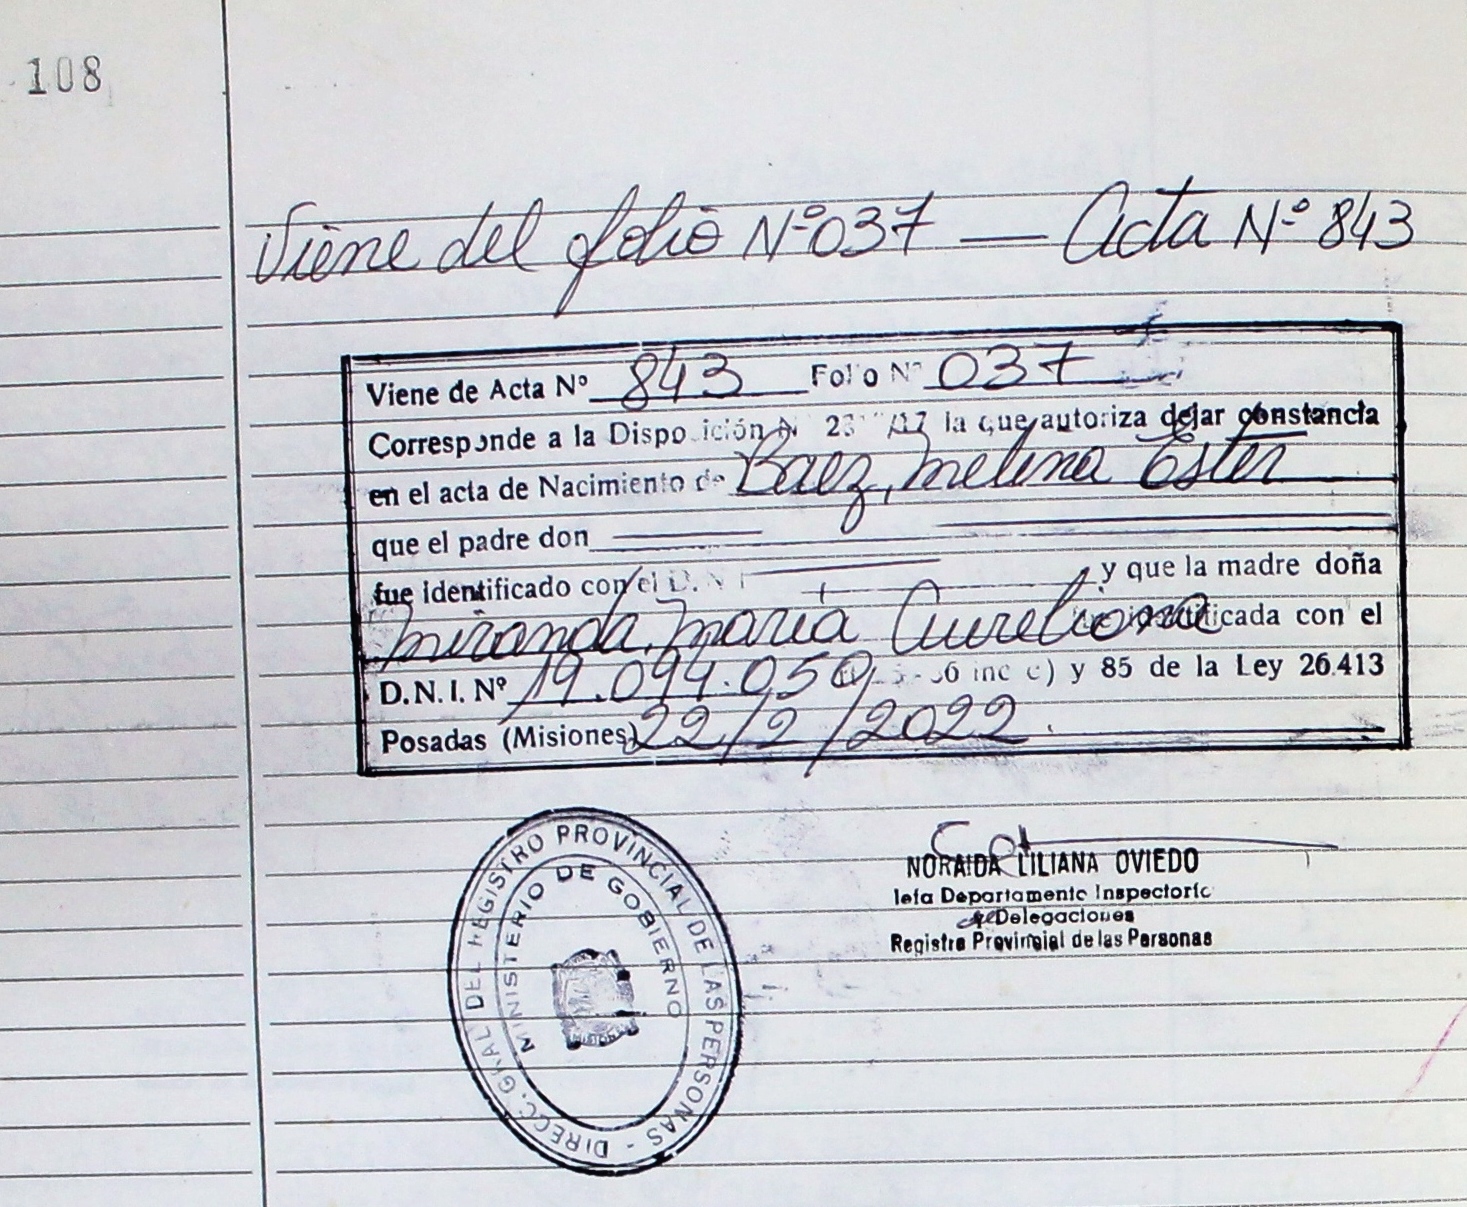 108
Viene del folio Nº 037 — Acta Nº 843
Viene de Acta Nº 843 Folio Nº 037
Corresponde a la Disposición N /17 la que autoriza dejar constancia
en el acta de Nacimiento de Baez, Melina Ester
que el padre don
fue identificado con el D.N.I y que la madre doña
Miranda, Maria Aureliana identificada con el
D.N.I. Nº 19.094.050 inc c) y 85 de la Ley 26.413
Posadas (Misiones) 22/2/2022.
DIRECC. GRAL DEL REGISTRO PROVINCIAL DE LAS PERSONAS -
MINISTERIO DE GOBIERNO
NORAIDA LILIANA OVIEDO
Jefa Departamento Inspectoria
de Delegaciones
Registro Provincial de las Personas